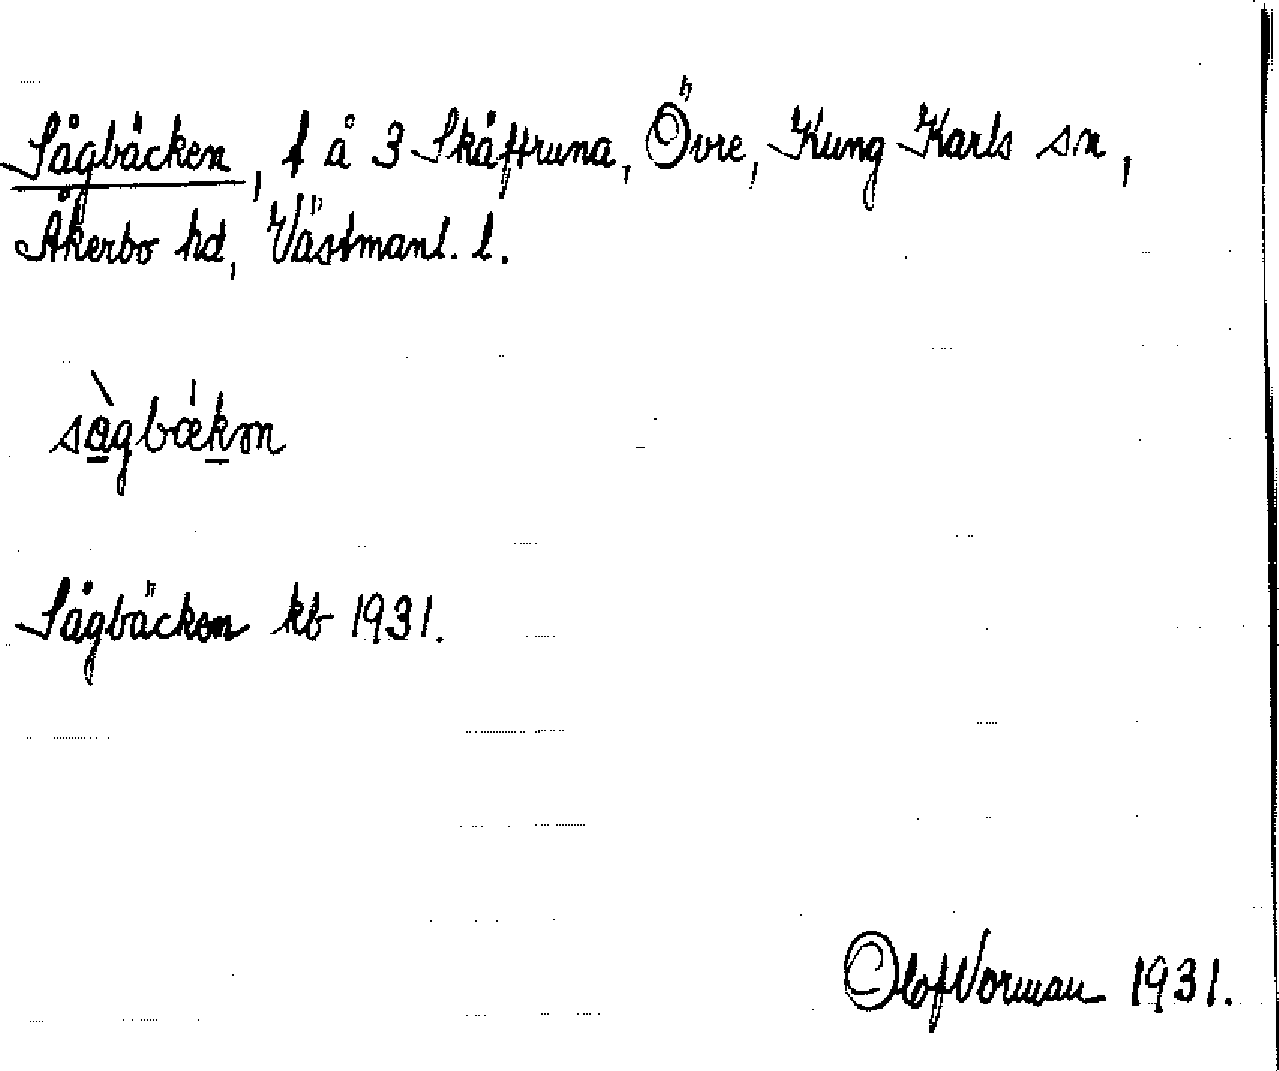 Sågbäcken, t å 3 Skäftruna, Övre, Kung Karls sn,
Åkerbo hd, Västmanl. l.
sàgbækən
Sågbäcken kb 1931.
Olof Norman 1931.